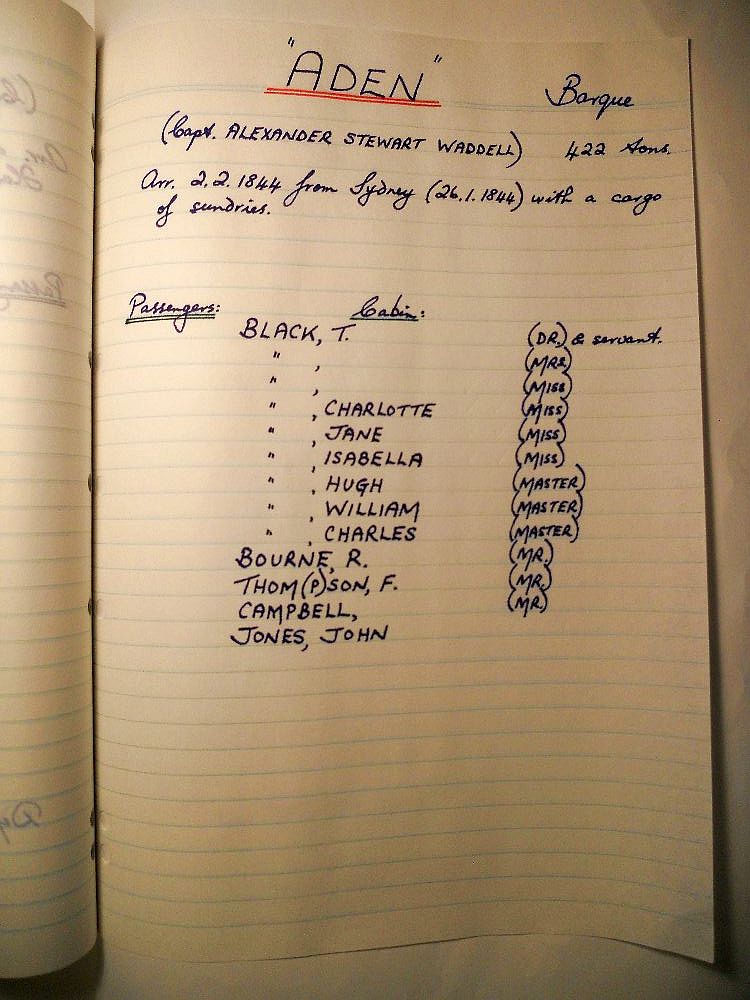 "ADEN" Barque
(Capt. ALEXANDER STEWART WADDELL) 422 tons.
Arr. 2.2.1844 from Sydney (26.1.1844) with a cargo
of sundries.
Passengers: Cabin:
BLACK, T. (DR.) & servant.
" , (MRS)
" , (MISS
" , CHARLOTTE (MISS)
" , JANE (MISS)
" , ISABELLA (MISS)
" , HUGH (MASTER)
" , WILLIAM (MASTER)
" , CHARLES (MASTER)
BOURNE, R. (MR.)
THOM(P)SON, F. (MR.)
CAMPBELL, (MR.)
JONES, JOHN